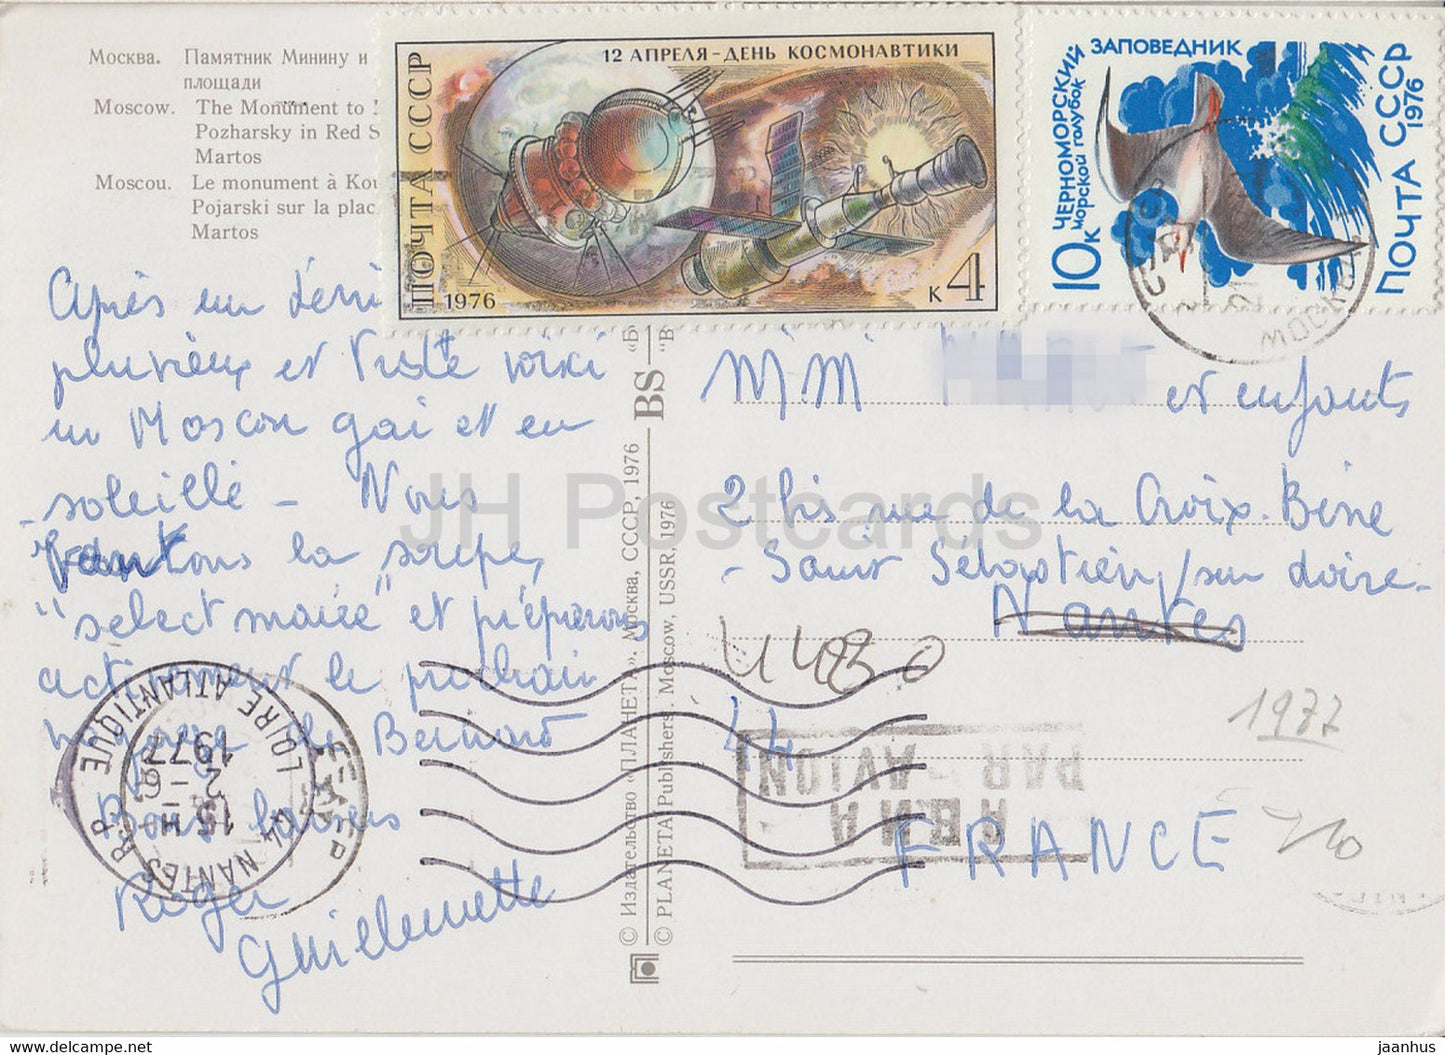 Москва. Памятник Минину и
площади
Moscow. The Monument to
Pozharsky in Red S
Martos
Moscou. Le monument à Kou
Pojarski sur la plac
Martos
ПОЧТА СССР
12 АПРЕЛЯ-ДЕНЬ КОСМОНАВТИКИ
1976
к4
ЧЕРНОМОРСКИЙ ЗАПОВЕДНИК
морской голубок
10к
ПОЧТА СССР
1976
МОСКВА
Après un
pluvieux et triste voici
un Moscou gai et en
soleillé - Nous
la
"select " et préparons
activement le prochain
de Bernard
Bons baisers
Roger
Guillemette
© Издательство «ПЛАНЕТА». Москва, СССР, 1976
© PLANETA Publishers. Moscow, USSR, 1976
BS
"Б
"В
M M et enfants
2 bis rue de la Croix-Bine
- Saint Sébastien/sur Loire-
Nantes
44230
44
FRANCE
1977
PAR AVION
44 NANTES R.P.
LOIRE ATLANTIQUE
15 H
2 - 6
1977
JH Postcards
jaanhus.com